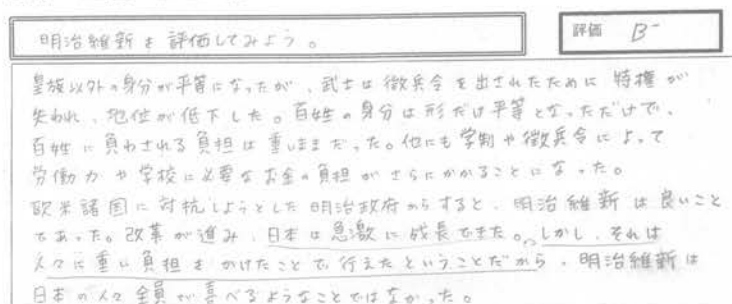 明治維新を評価してみよう。
評価 B-
皇族以外の身分が平等になったが、武士は徴兵令を出されたために特権が
失われ、地位が低下した。百姓の身分は形だけ平等となっただけで、
百姓に負わされる負担は重いままだった。他にも学制や徴兵令によって
労働力や学校に必要なお金の負担がさらにかかることになった。
欧米諸国に対抗しようとした明治政府からすると、明治維新は良いこと
であった。改革が進み、日本は急激に成長できた。しかし、それは
人々に重い負担をかけたことで行えたということだから、明治維新は
日本の人々全員が喜べるようなことではなかった。